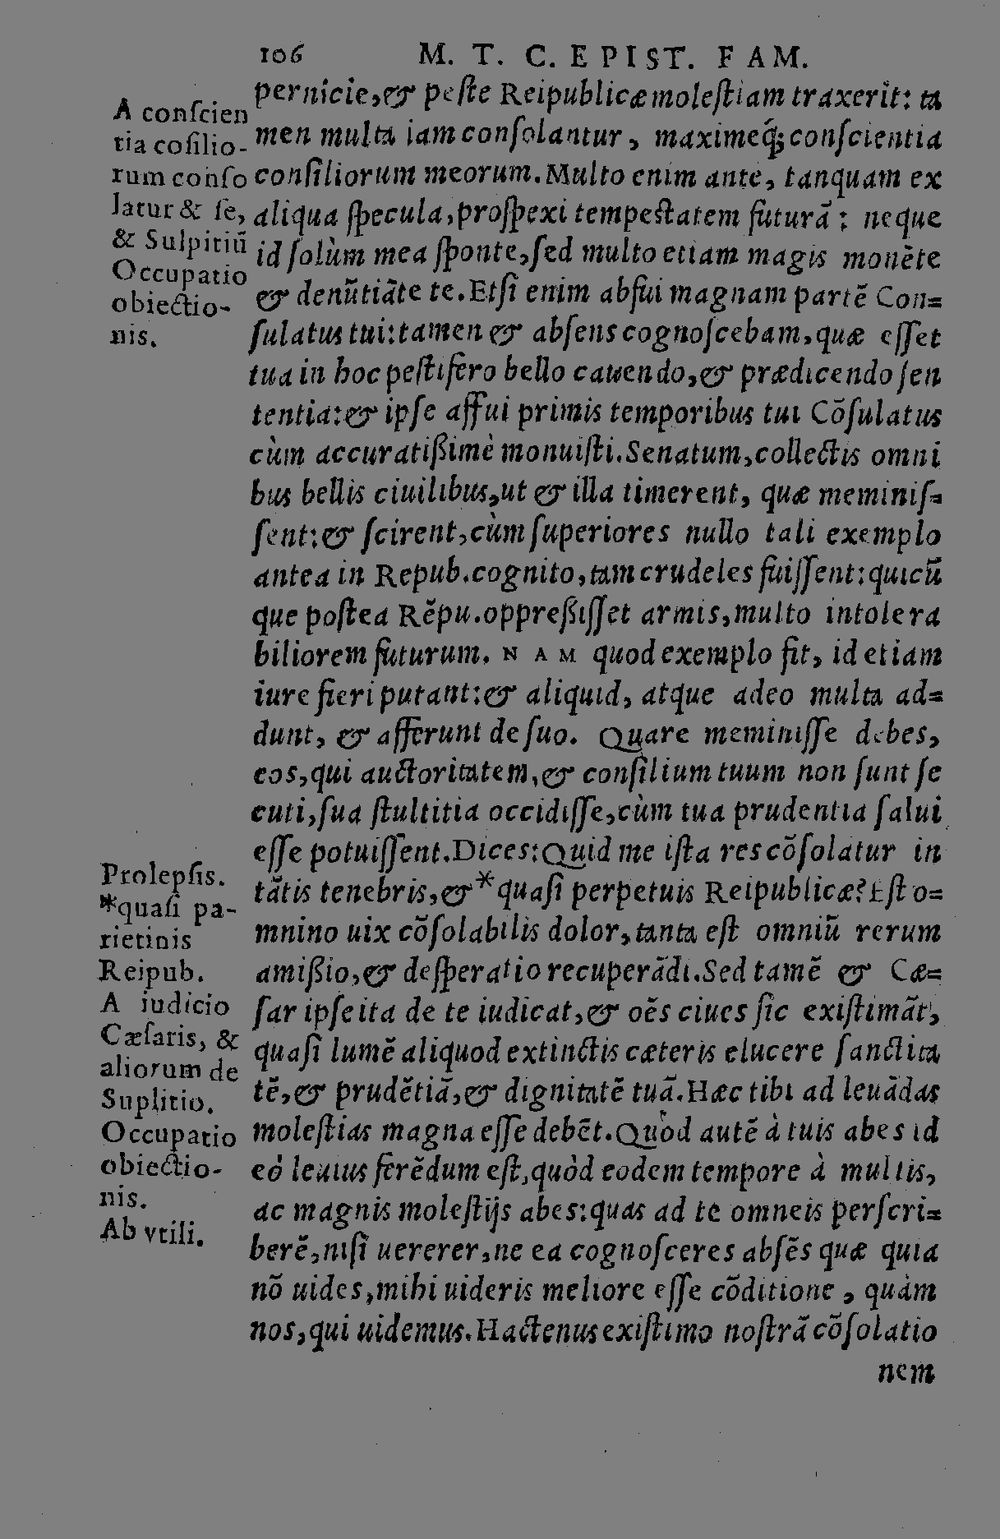 106 M. T. C. EPIST. FAM.
pernicie,& peſte Reipublicæ moleſtiam traxerit: ta
men multa iam conſolantur, maximeq́; conſcientia
conſiliorum meorum. Multo enim ante, tanquam ex
aliqua ſpecula, proſpexi tempeſtatem futurā: neque
id ſolùm mea ſponte, ſed multo etiam magis monēte
& denūtiāte te. Etſi enim abfui magnam partē Con=
ſulatus tui: tamen & abſens cognoſcebam, quæ eſſet
tua in hoc peſtifero bello cauendo, & prædicendo ſen
tentia: & ipſe affui primis temporibus tui Cōſulatus
cùm accuratißimè monuiſti. Senatum, collectis omni
bus bellis ciuilibus, ut & illa timerent, quæ meminiſ=
ſent: & ſcirent, cùm ſuperiores nullo tali exemplo
antea in Repub. cognito, tam crudeles fuiſſent: quicū
que poſtea Rēpu. oppreßiſſet armis, multo intolera
biliorem futurum. NAM quod exemplo fit, id etiam
iure fieri putant: & aliquid, atque adeo multa ad=
dunt, & afferunt de ſuo. Quare meminiſſe debes,
eos, qui auctoritatem, & conſilium tuum non ſunt ſe
cuti, ſua ſtultitia occidiſſe, cùm tua prudentia ſalui
eſſe potuiſſent. Dices: Quid me iſta res cōſolatur in
tātis tenebris, & *quaſi perpetuis Reipublicæ? Eſt o=
mnino uix cōſolabilis dolor, tanta eſt omniū rerum
amißio, & deſperatio recuperādi. Sed tamē & Cæ=
ſar ipſe ita de te iudicat, & oēs ciues ſic exiſtimāt,
quaſi lumē aliquod extinctis cæteris elucere ſanctita
tē, & prudētiā, & dignitatē tuā. Hæc tibi ad leuādas
moleſtias magna eſſe debēt. Quòd autē à tuis abes id
eò leuius ferēdum eſt, quòd eodem tempore à multis,
ac magnis moleſtijs abes: quas ad te omneis perſcri=
berē, niſi uererer, ne ea cognoſceres abſēs quæ quia
nō uides, mihi uideris meliore eſſe cōditione, quàm
nos, qui uidemus. Hactenus exiſtimo noſtrā cōſolatio
nem
A conſcien
tia coſilio-
rum conſo
latur & ſe,
& Sulpitiū
Occupatio
obiectio-
nis.
Prolepſis.
*quaſi pa-
rietinis
Reipub.
A iudicio
Cæſaris, &
aliorum de
Suplitio.
Occupatio
obiectio-
nis.
Ab vtili.